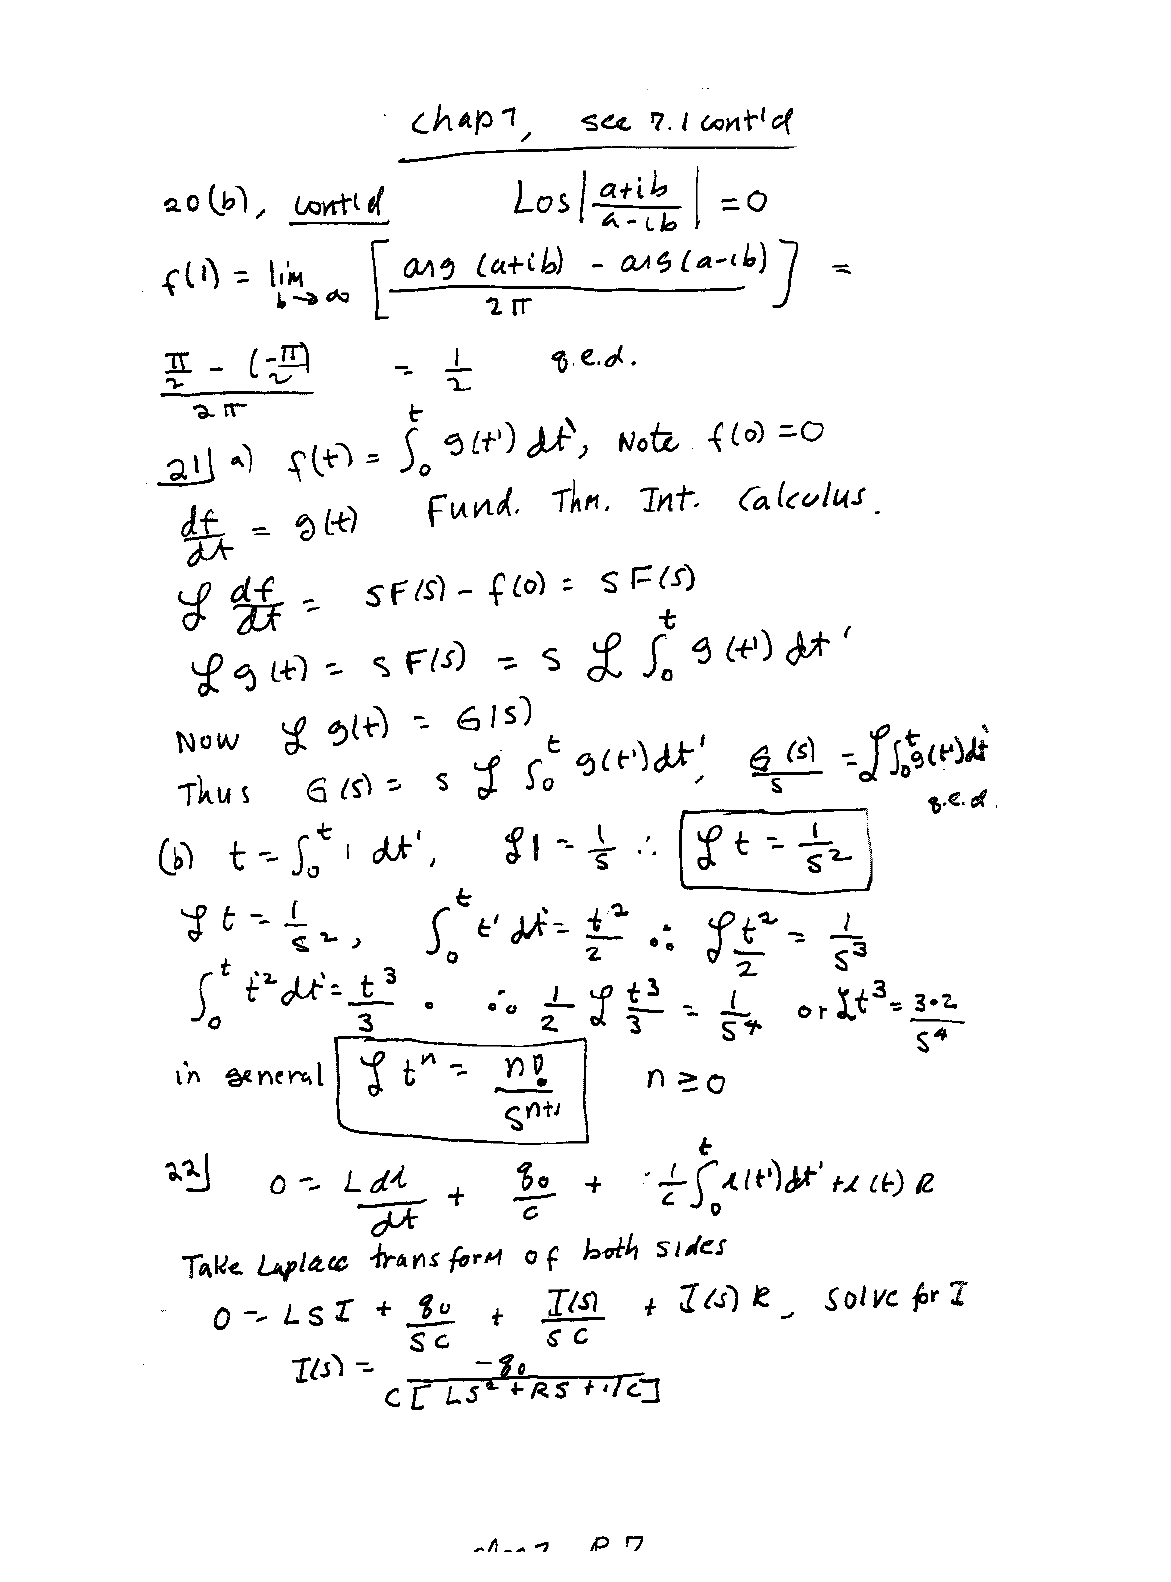 chap 7, sec 7.1 cont'd
20(b), cont'd Log |a+ib / a-ib| = 0
f(1) = lim b→∞ [ (arg (a+ib) - arg (a-ib)) / 2π ] =
(π/2 - (-π/2)) / 2π = 1/2 q.e.d.
21] a) f(t) = ∫₀ᵗ g(t') dt', Note f(0) = 0
df/dt = g(t) Fund. Thm. Int. Calculus.
ℒ df/dt = SF(S) - f(0) = SF(S)
ℒ g(t) = S F(S) = S ℒ ∫₀ᵗ g(t') dt'
Now ℒ g(t) = G(S)
Thus G(S) = S ℒ ∫₀ᵗ g(t') dt', G(S)/S = ℒ ∫₀ᵗ g(t') dt'
q.e.d.
(b) t = ∫₀ᵗ 1 dt', ℒ 1 = 1/S ∴ ℒ t = 1/S²
ℒ t = 1/S², ∫₀ᵗ t' dt' = t²/2 ∴ ℒ t²/2 = 1/S³
∫₀ᵗ t'² dt' = t³/3 . ∴ 1/2 ℒ t³/3 = 1/S⁴ or ℒ t³ = 3·2/S⁴
in general ℒ tⁿ = n!/Sⁿ⁺¹ n ≥ 0
22] 0 = L di/dt + q₀/C + 1/C ∫₀ᵗ i(t') dt' + i(t) R
Take Laplace transform of both sides
0 = LSI + q₀/SC + I(S)/SC + I(S) R, solve for I
I(S) = -q₀ / C[LS² + RS + 1/C]